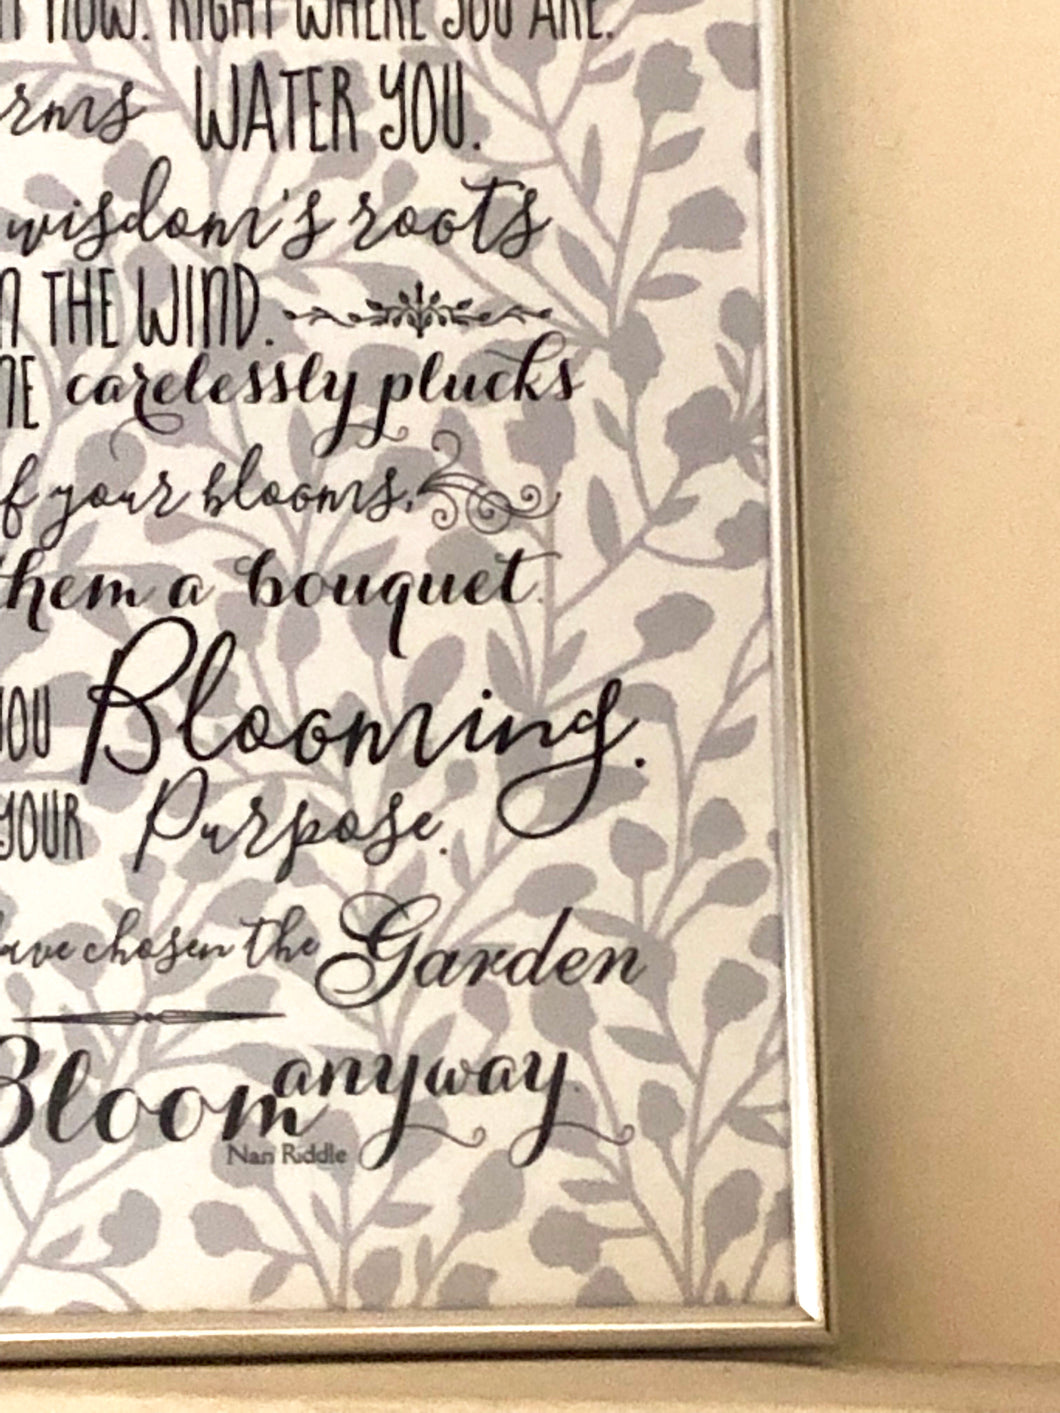 NOW. RIGHT WHERE YOU ARE.
WATER YOU.
wisdom's roots
THE WIND.
carelessly plucks
your blooms.
them a bouquet.
YOU Blooming.
YOUR Purpose.
chosen the Garden
Bloom anyway.
Nan Riddle